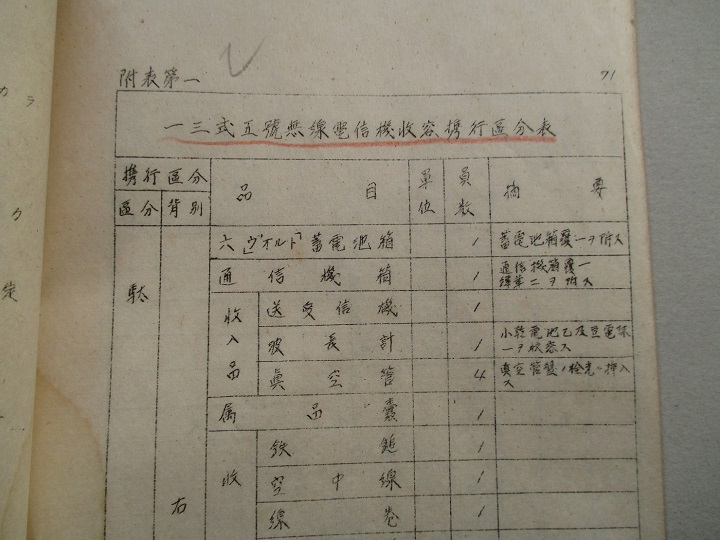 附表第一
71
一三式五號無線電信機收容携行區分表
携行區分 品目 單位 員數 摘要
區分 背別
六「ヴオルト」蓄電池箱 1 蓄電池箱覆一ヲ附ス
通信機箱 1 通信機箱覆一
ヲ附ス
駄
收入品 送受信機 1
波長計 1 小乾電池乙及豆電球
一ヲ状态ス
眞空管 4 眞空管盤ノ栓壳ヘ挿入
ス
属品嚢 1
收 鉄鎚 1
空中線 1
右
線巻 1
カラ
ク
定